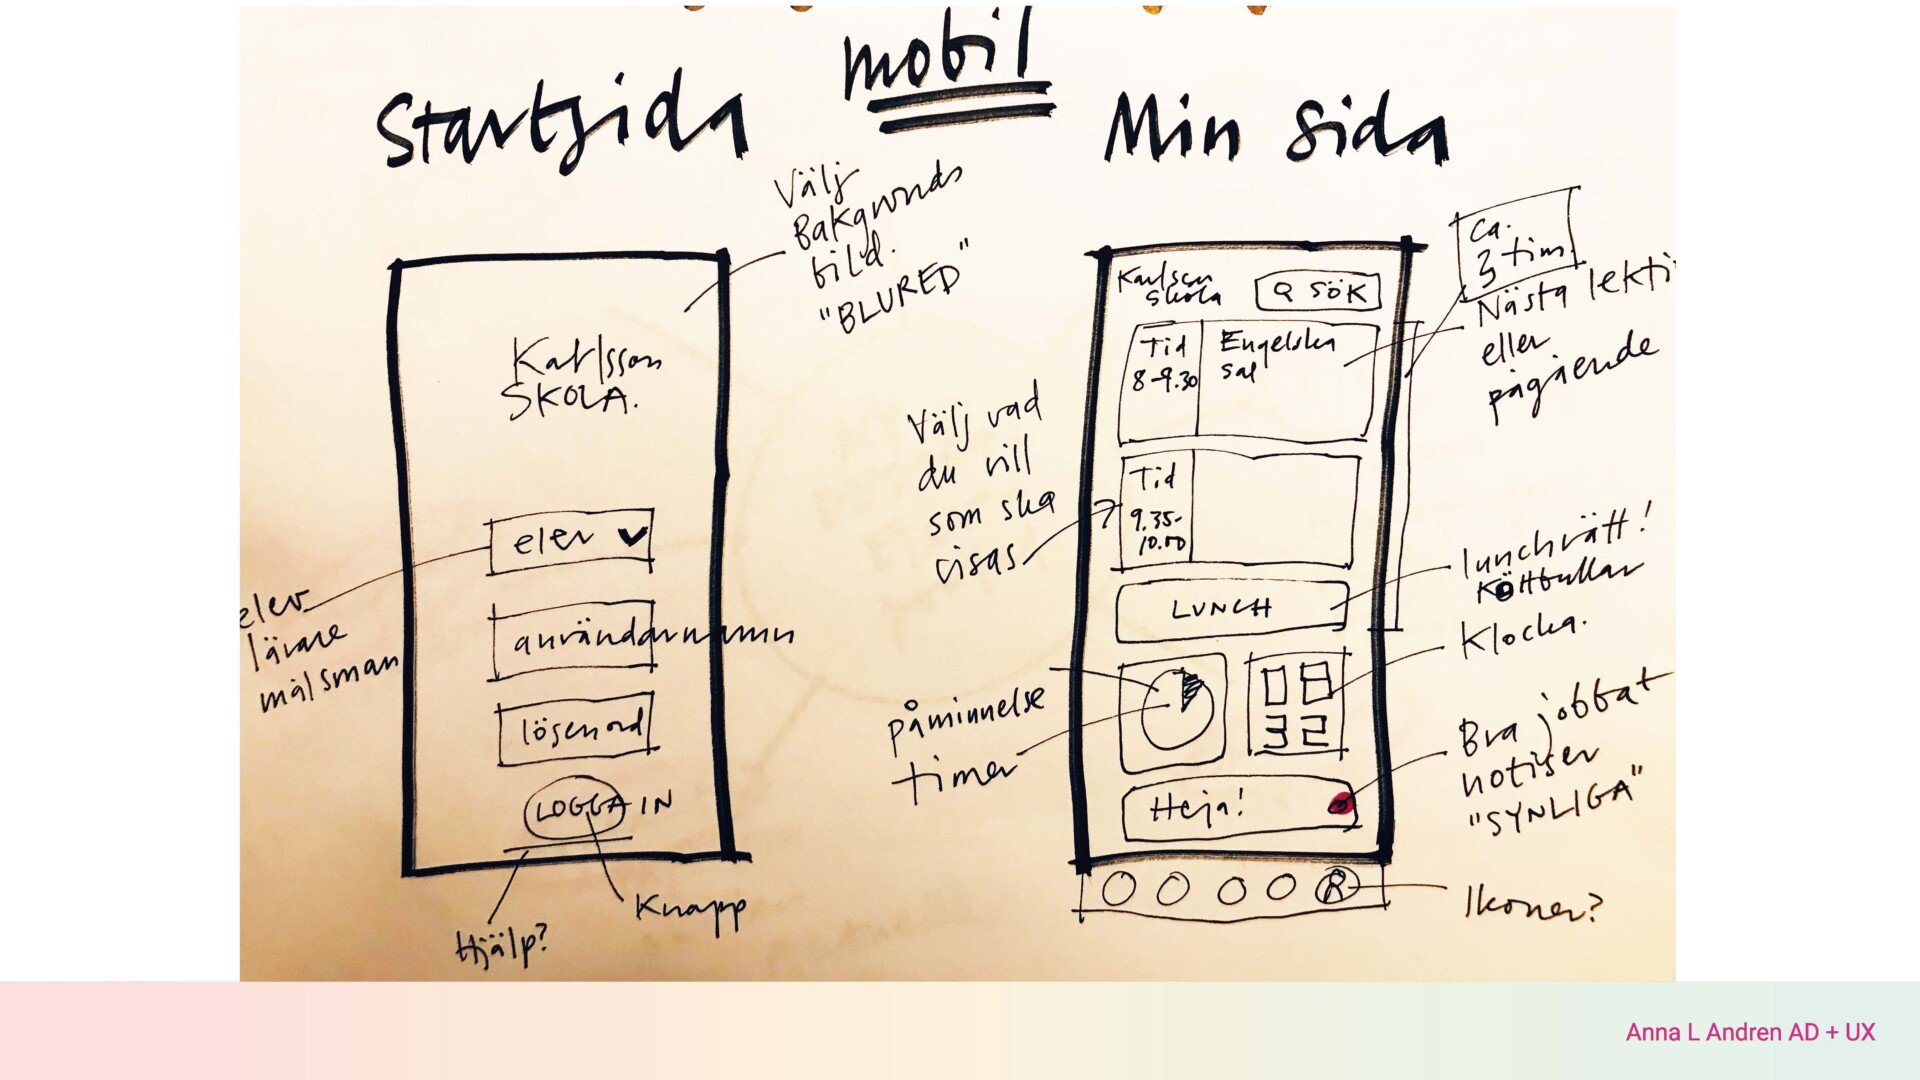 mobil
Startsida
Välj
Bakgrunds
bild.
"BLURED"
Karlsson
SKOLA.
elev
elev
lärare
målsman
användarnamn
lösenord
LOGGA IN
Hjälp?
Knapp
Min Sida
Ca.
3 tim
Nästa lekti
eller
pågående
Karlson
Skola
SÖK
Tid
8-9.30
Engelska
sal
Välj vad
du vill
som ska
visas
Tid
9.35-
10.00
LUNCH
lunchrätt!
Köttbullar
Klocka.
påminnelse
timer
08
32
Bra jobbat
notiser
"SYNLIGA"
Heja!
R
Ikoner?
Anna L Andren AD + UX